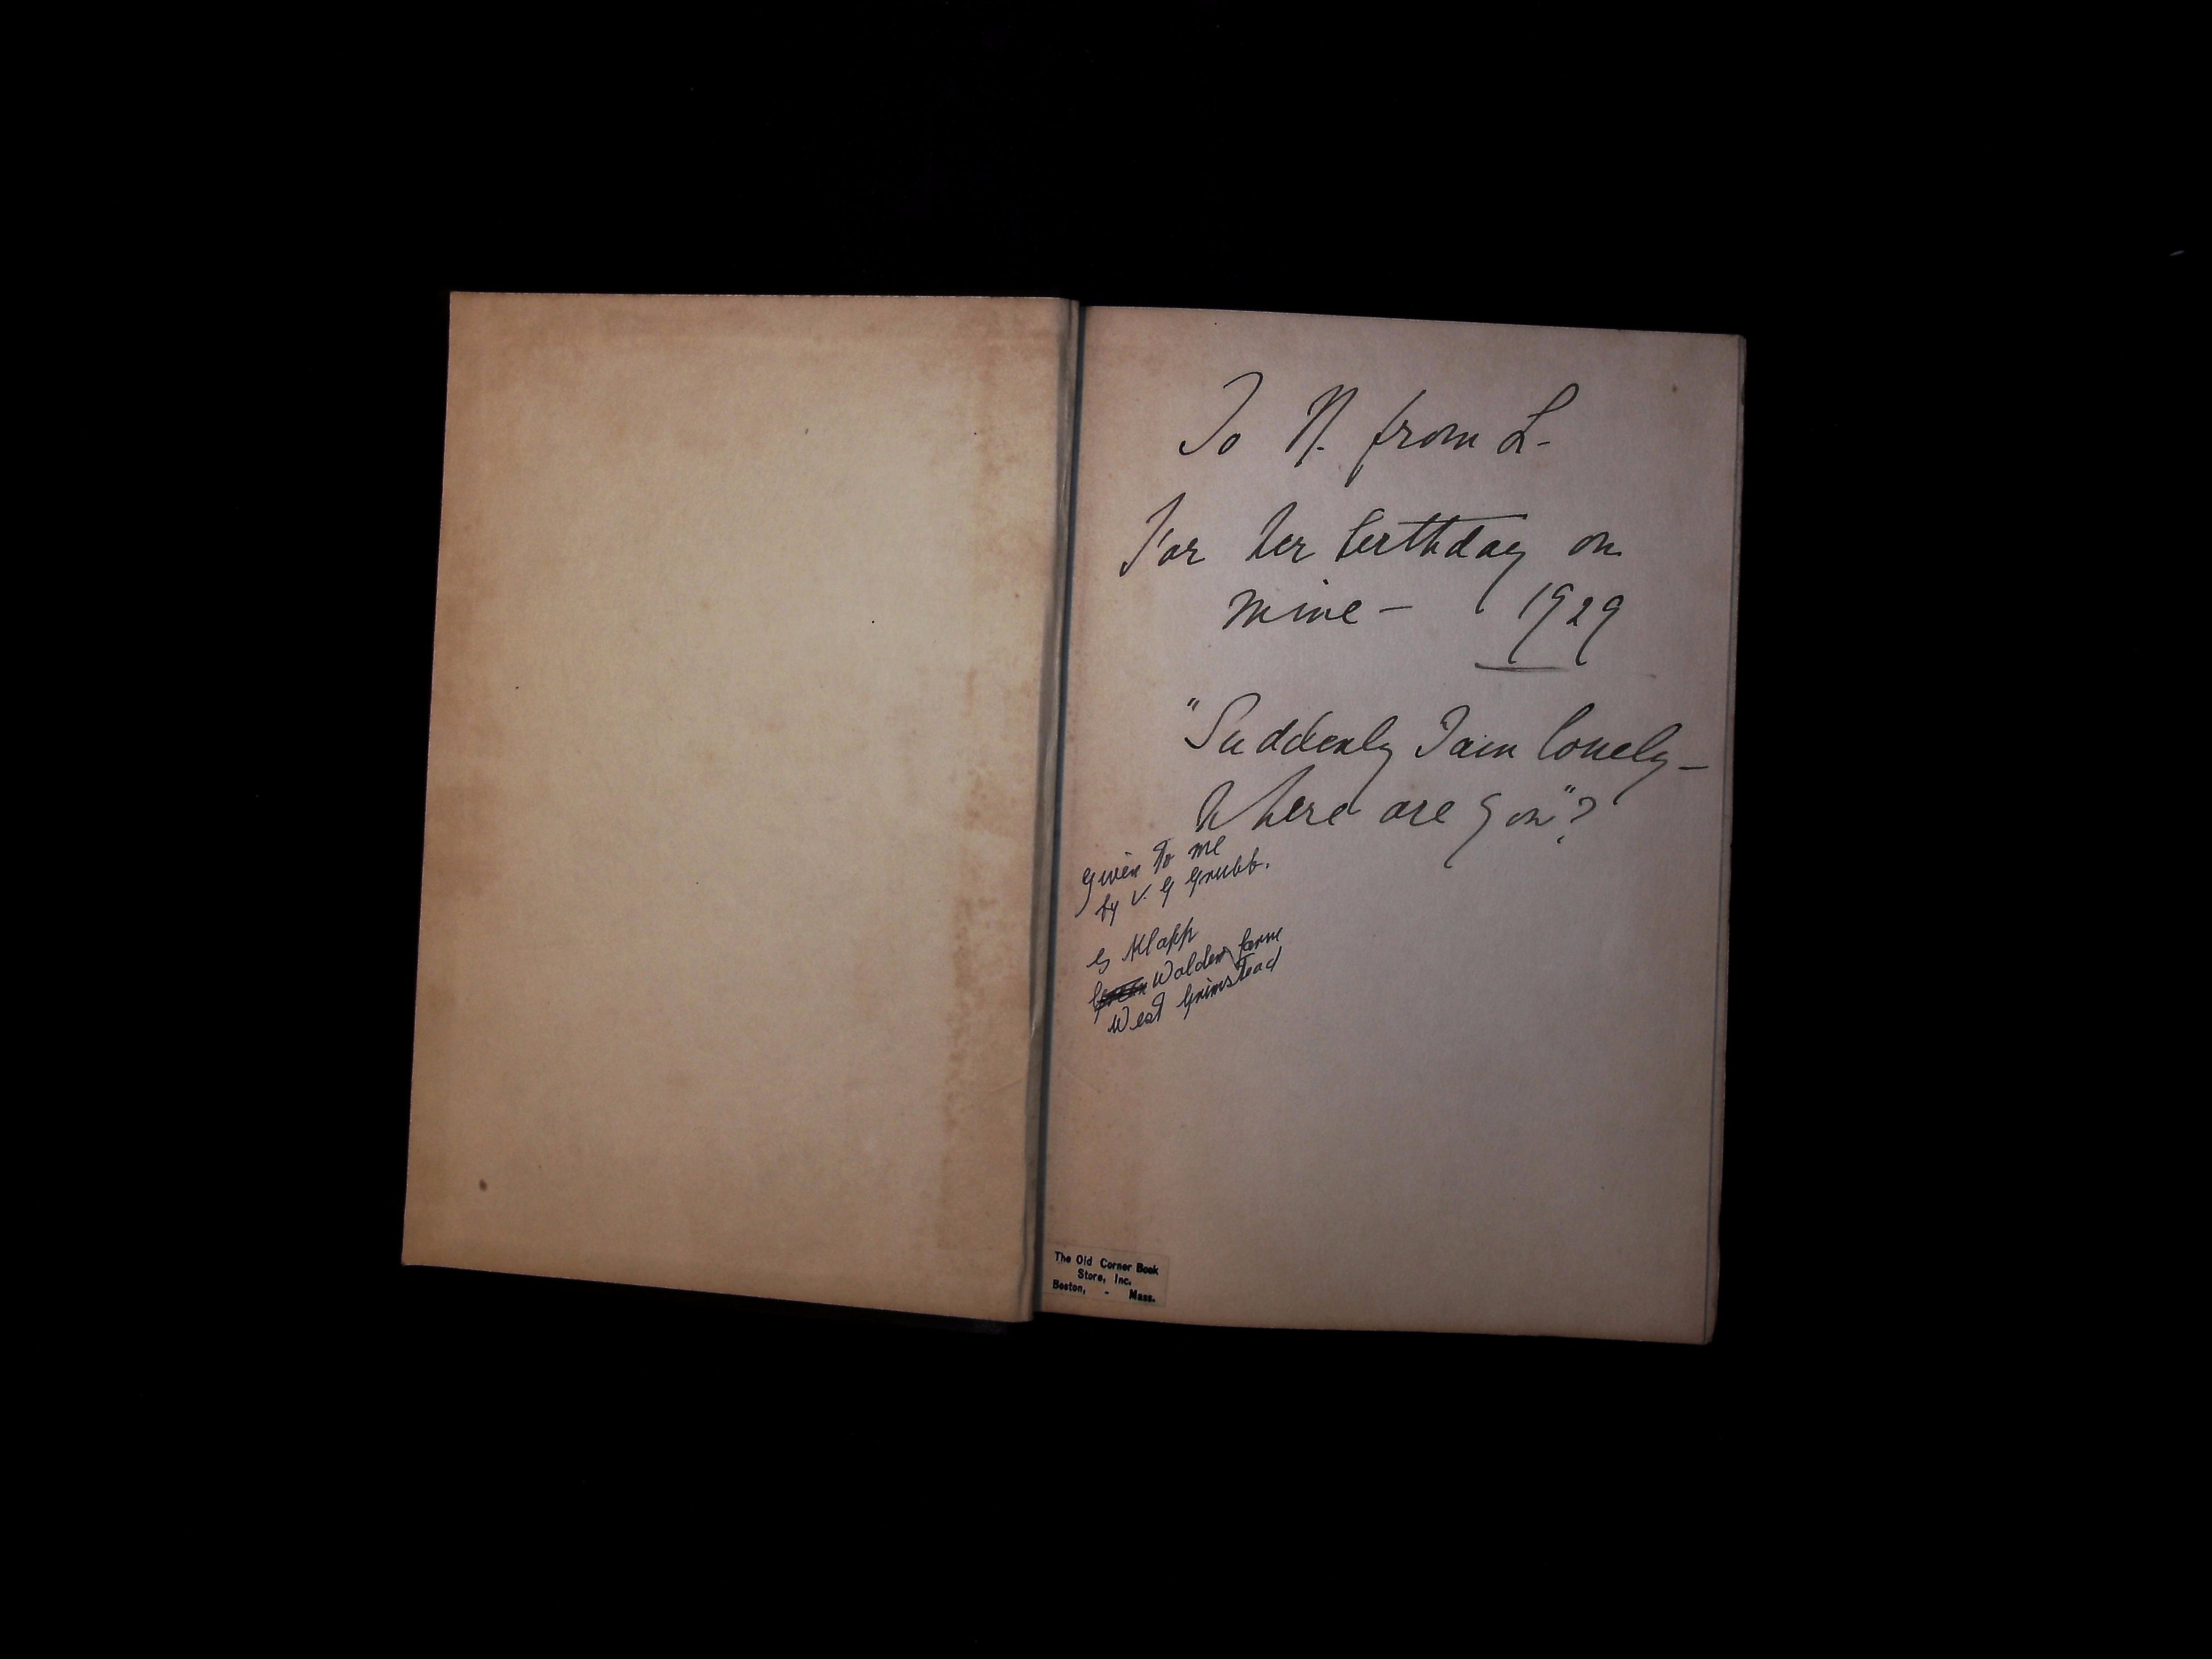 To N. from L-
For her birthday on
mine - 1929
"Suddenly I am lonely -
Where are you"?
given to me
by V. G Grubb.
Walden farm
West Grimstead
The Old Corner Book
Store, Inc.
Boston, - Mass.